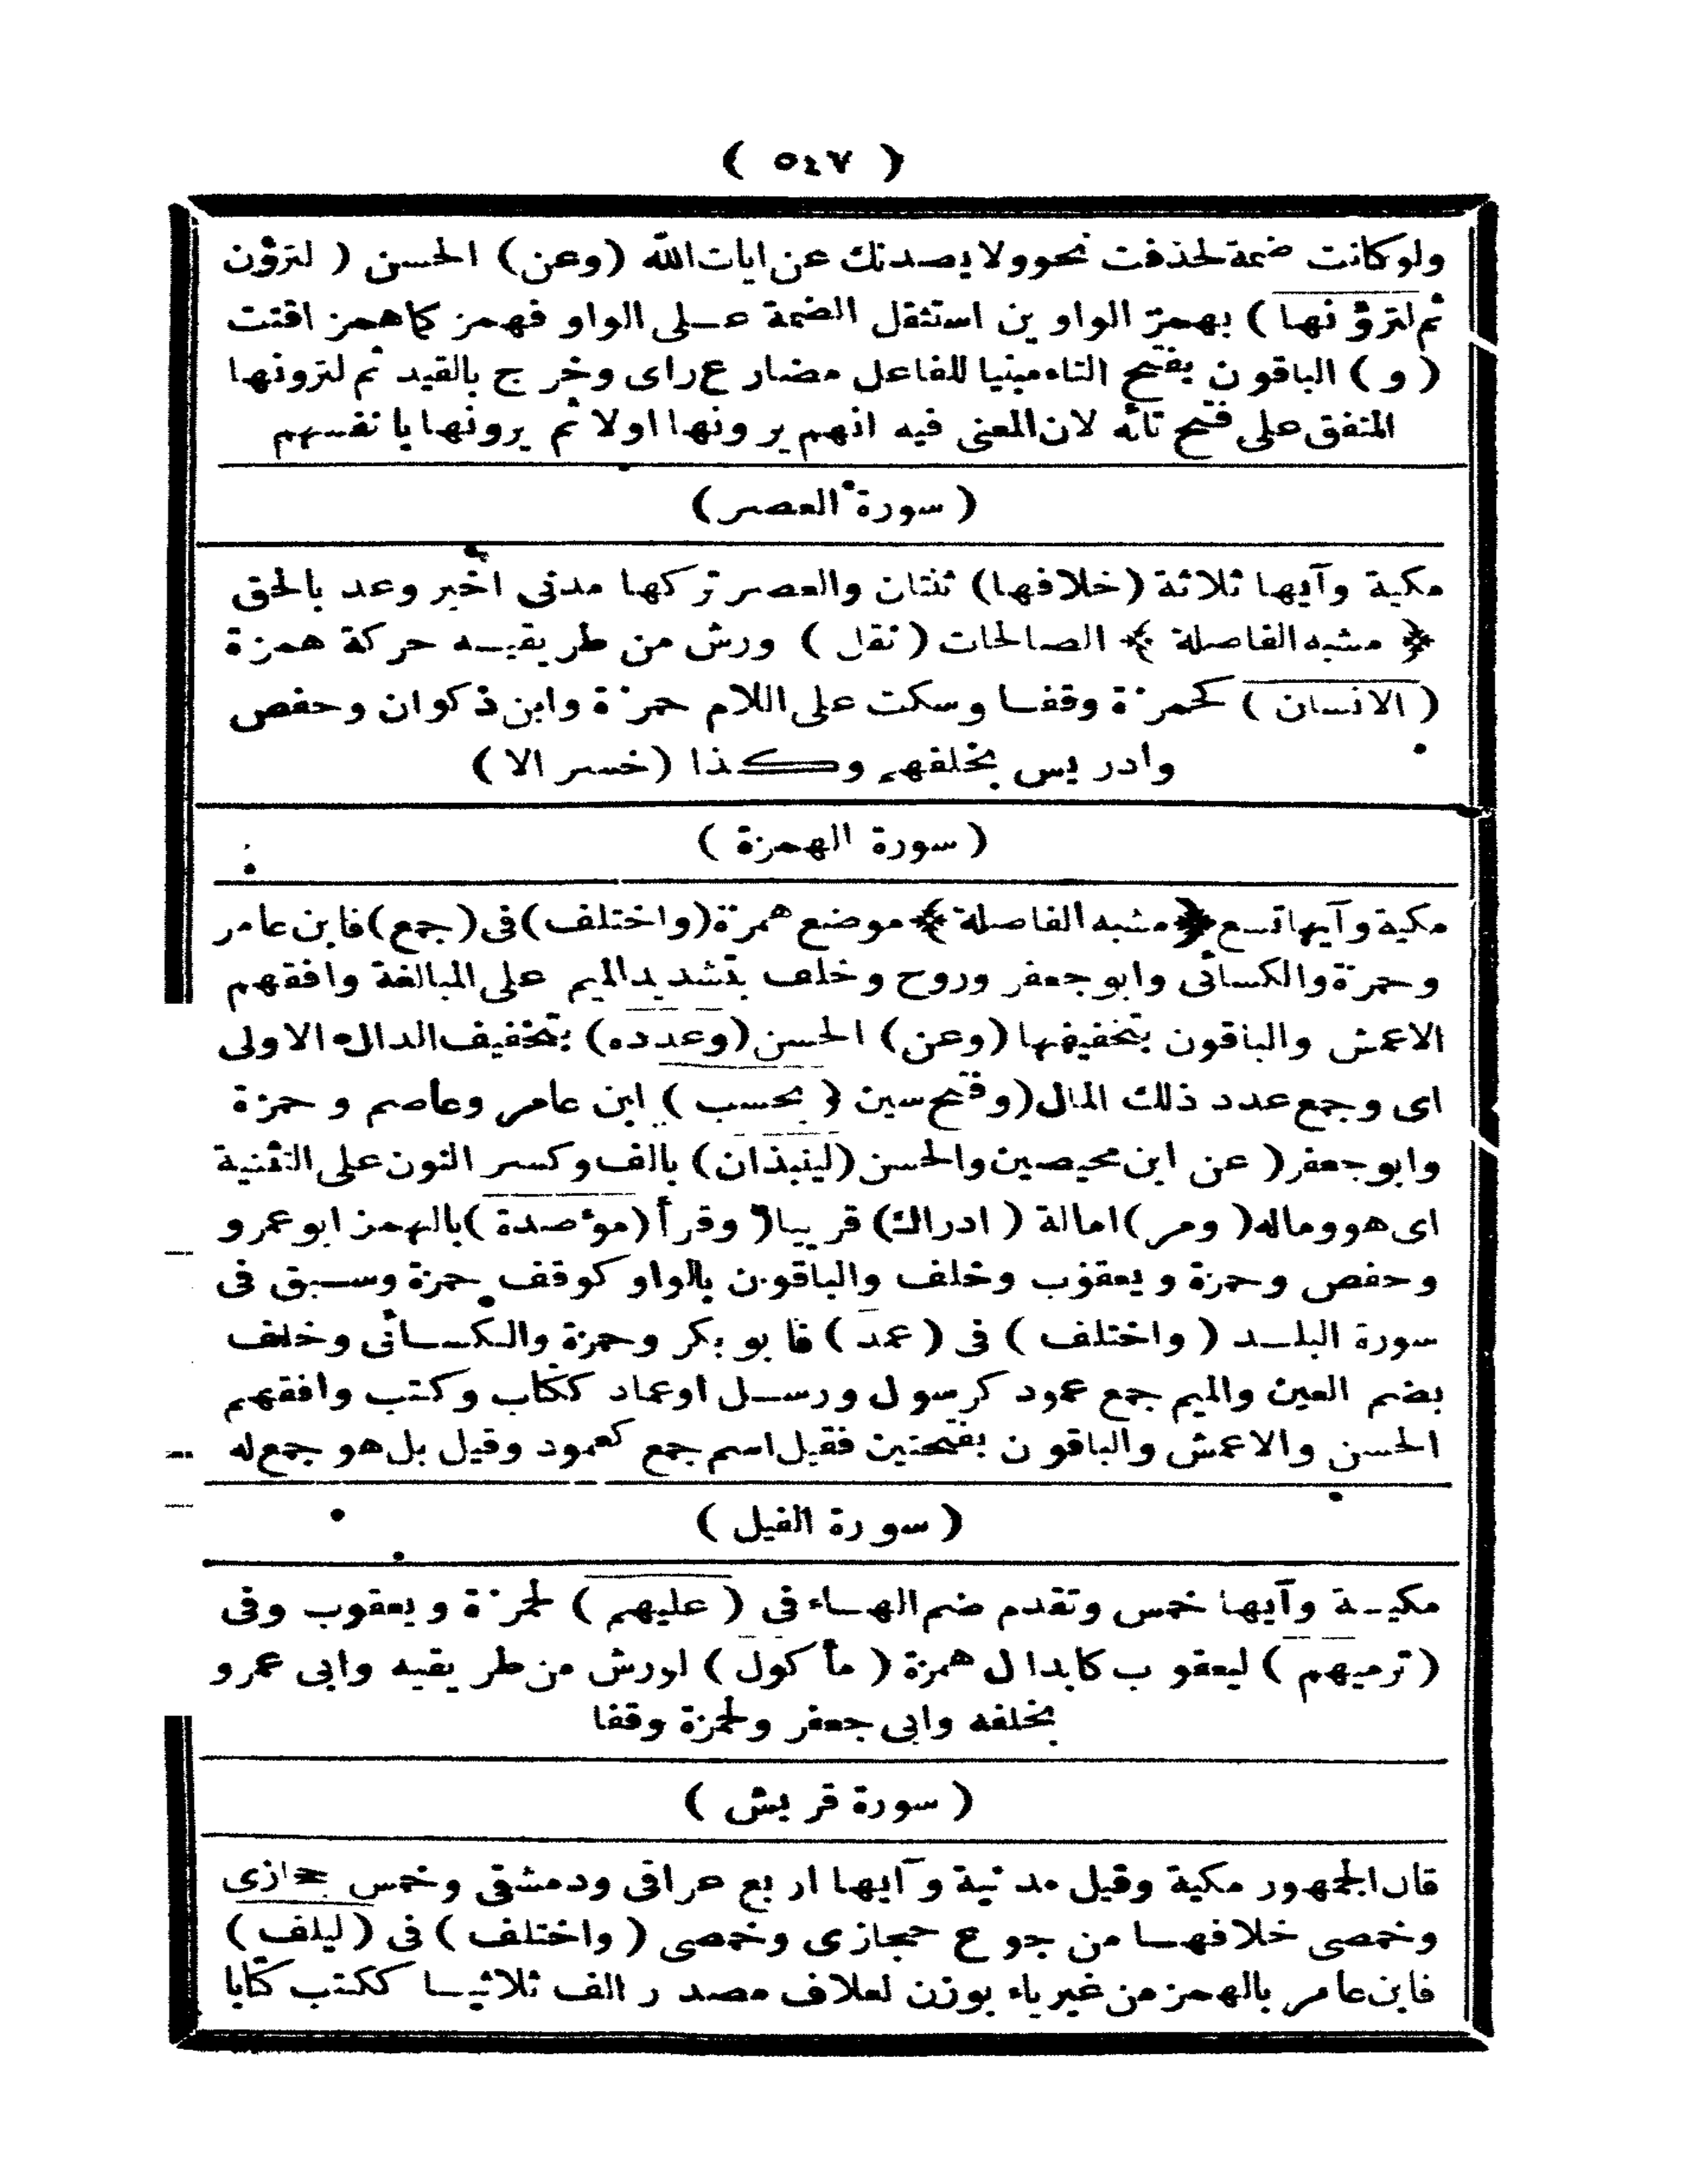 ( ٥٤٧ )
ولو كانت ضمة لحذفت نحو ولا يصدنك عن ايات الله (وعن) الحسن ( لترؤن
ثم لترؤنها ) بهمز الواوين استثقل الضمة عـلى الواو فهمز كما همز اقتت
( و ) الباقون بفتح التاء مبنيا للفاعل مضارع راى وخرج بالقيد ثم لترونها
المتفق على فتح تائه لان المعنى فيه انهم يرونها اولا ثم يرونها بانفسهم
( سورة العصر )
مكية وآيها ثلاثة (خلافها) ثنتان والعصر تركها مدنى اخير وعد بالحق
﴿ مشبه الفاصلة ﴾ الصالحات ( نقل ) ورش من طريقيـه حركة همزة
( الانسان ) كحمزة وقفـا وسكت على اللام حمزة وابن ذكوان وحفص
وادريس بخلفهم وكـذا (خسر الا )
( سورة الهمزة )
مكية وآيها تسع ﴿ مشبه الفاصلة ﴾ موضع همزة (واختلف) فى (جمع) فابن عامر
وحمزة والكسائى وابو جعفر وروح وخلف بتشديد الميم على المبالغة وافقهم
الاعمش والباقون بتخفيفها (وعن) الحسن (وعدده) بتخفيف الدال الاولى
اى وجمع عدد ذلك المال (وفتح سين ( يحسب ) ابن عامر وعاصم وحمزة
وابو جعفر ( عن ابن محيصين والحسن (لينبذان) بالف وكسر النون على التثنية
اى هو وماله ( ومر ) امالة ( ادراك) قريبا ( وقرأ (مؤصدة) بالهمز ابو عمرو
وحفص وحمزة ويعقوب وخلف والباقون بالواو كوقف حمزة وسـبق فى
سورة البلـد ( واختلف ) فى ( عمد ) فابو بكر وحمزة والـكسـائى وخلف
بضم العين والميم جمع عمود كرسول ورسـل او عماد ككتاب وكتب وافقهم
الحسن والاعمش والباقون بفتحتين فقيل اسم جمع كعمود وقيل بل هو جمع له
( سورة الفيل )
مكيـة وآيها خمس وتقدم ضم الهـاء فى ( عليهم ) لحمزة ويعقوب وفى
( ترميهم ) ليعقوب كابدال همزة ( مأكول ) لورش من طريقيه وابى عمرو
بخلفه وابى جعفر ولحمزة وقفا
( سورة قريش )
قال الجمهور مكية وقيل مدنية وآيها اربع عراقى ودمشقى وخمس حجازى
وخمصى خلافهـا من جوع حجازى وخمصى ( واختلف ) فى ( ليلف )
فابن عامر بالهمز من غير ياء بوزن لعلاف مصدر الف ثلاثيـا ككتب كتابا